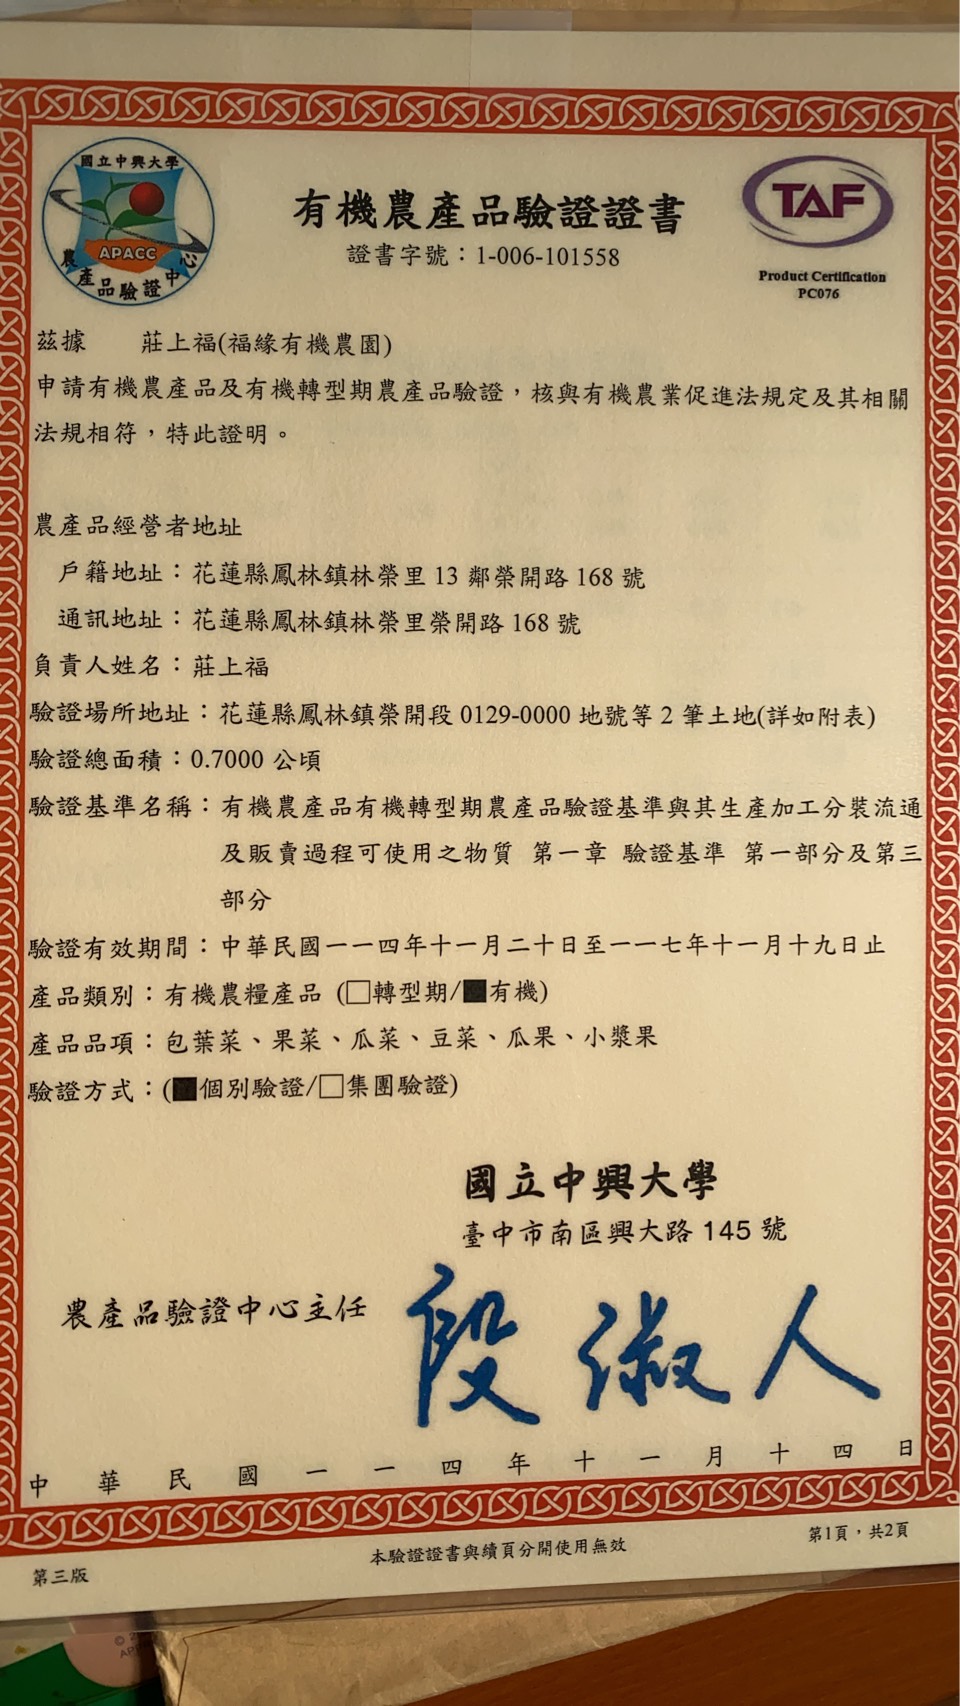 國立中興大學
APACC
農產品驗證中心
TAF
Product Certification
PC076
有機農產品驗證證書
證書字號：1-006-101558
茲據 莊上福(福緣有機農園)
申請有機農產品及有機轉型期農產品驗證，核與有機農業促進法規定及其相關
法規相符，特此證明。
農產品經營者地址
戶籍地址：花蓮縣鳳林鎮林榮里 13 鄰榮開路 168 號
通訊地址：花蓮縣鳳林鎮林榮里榮開路 168 號
負責人姓名：莊上福
驗證場所地址：花蓮縣鳳林鎮榮開段 0129-0000 地號等 2 筆土地(詳如附表)
驗證總面積：0.7000 公頃
驗證基準名稱：有機農產品有機轉型期農產品驗證基準與其生產加工分裝流通
及販賣過程可使用之物質 第一章 驗證基準 第一部分及第三
部分
驗證有效期間：中華民國一一四年十一月二十日至一一七年十一月十九日止
產品類別：有機農糧產品 (□轉型期/■有機)
產品品項：包葉菜、果菜、瓜菜、豆菜、瓜果、小漿果
驗證方式：(■個別驗證/□集團驗證)
國立中興大學
臺中市南區興大路 145 號
農產品驗證中心主任 段淑人
中華民國一一四年十一月十四日
第1頁，共2頁
本驗證證書與續頁分開使用無效
第三版